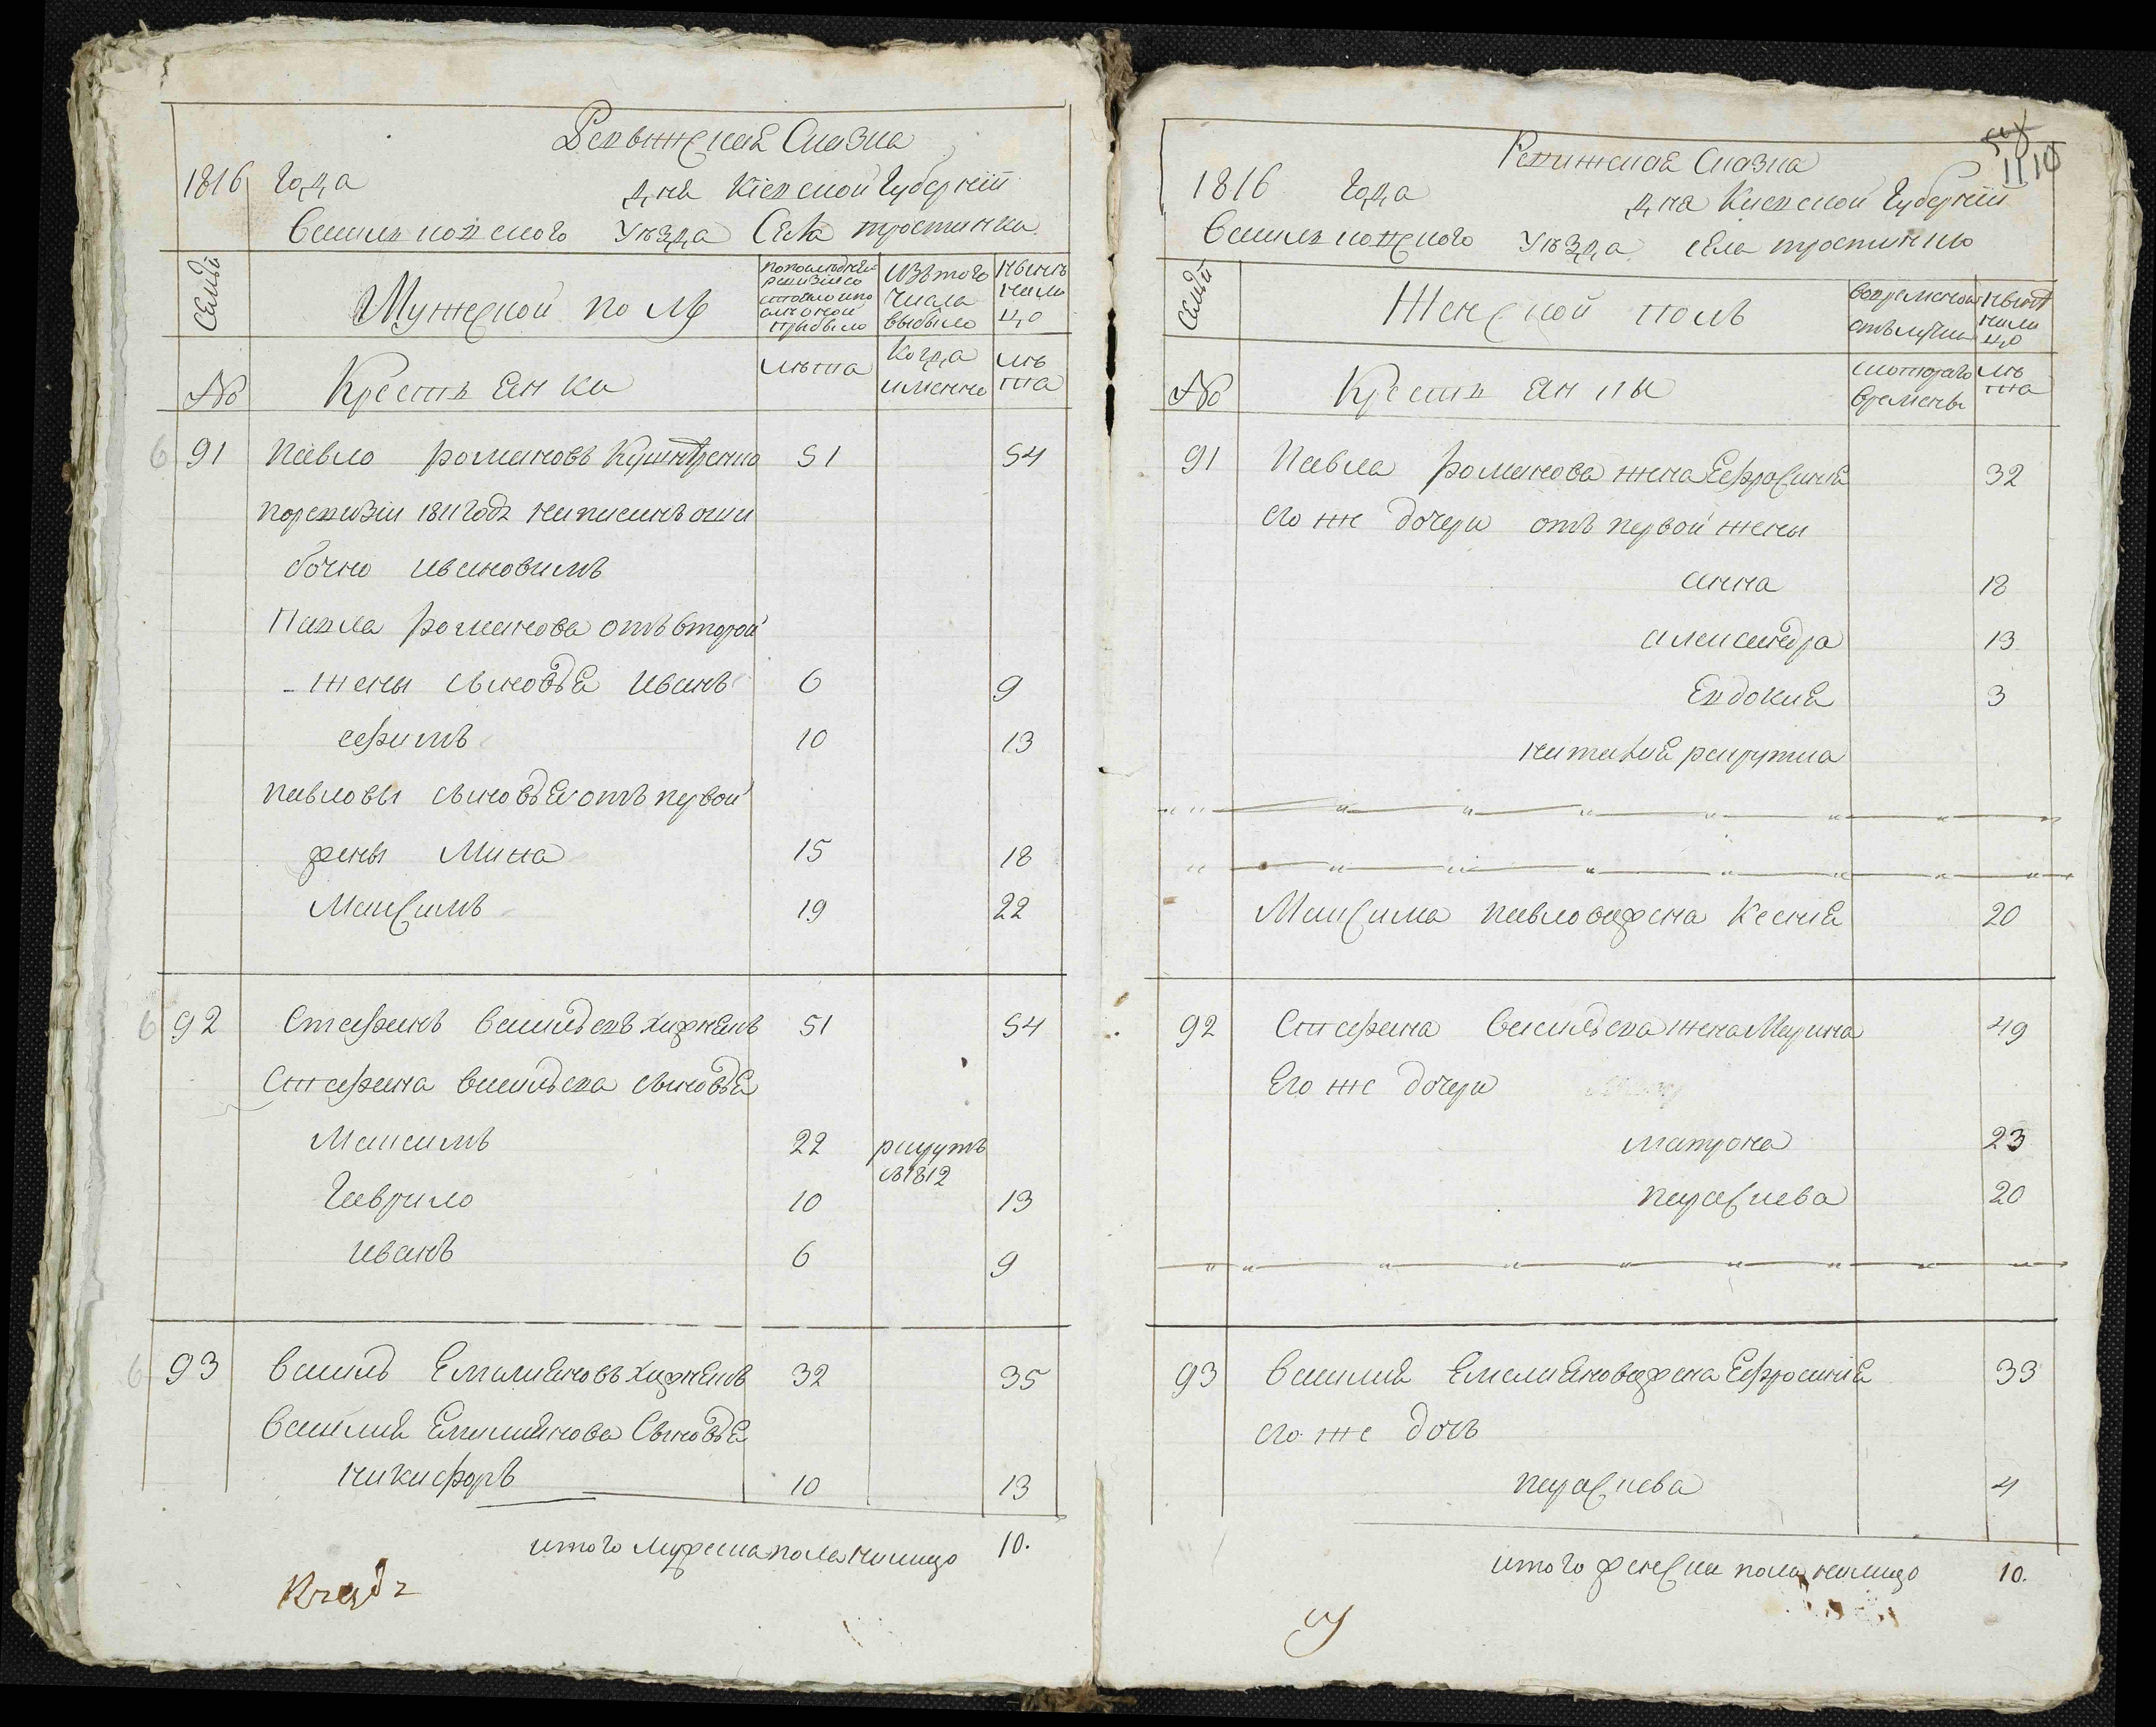 Ревижская Сказка
1816 года дня Кіевской Губерніи
Васильковского Уѣзда Села тростинки
Семьи
Мужеской полъ
по последней ревизіи состояло и после оной прибыло
Изъ того числа выбыло
Нынѣ на лицо
№
Крестьяни
лѣта
Когда именно
лѣта
91 павло романовъ Кушнѣренко 51 54
по ревизіи 1811 года написанъ оши
бочно ивановимъ
Павла романова отъ второй
жены сыновья иванъ 6 9
ефимъ 10 13
павловы сыновья отъ первой
жены Мина 15 18
Максимъ 19 22
92 Стефанъ василіевъ хижнякъ 51 54
Стефана василіева сыновья
Максимъ 22 рекрутъ
в 1812
Гаврило 10 13
иванъ 6 9
93 василь Емелияновъ хижнякъ 32 35
василия Емелиянова Сыновья
никифоръ 10 13
итого мужеска пола налицо 10.
Ревижская Сказка
1110
1816 года дня Киевской Губерніи
Васильковского Уѣзда села тростинки
Семьи
Женской полъ
во временной отълучки
Нынѣ нали цо
№
Крестьянки
с которого времены
лѣта
91 Павла романова жена Ефросиния 32
его же дочери отъ первой жены
анна 18
александра 13
Евдокия 3
наталия рекрутка
Максима павлова жена Ксения 20
92 Стефана Василіева жена Марина 49
Его же дочери
матрона 23
параскева 20
93 василия Емелиянова жена Ефросиния 33
его же дочь
параскева 4
итого женска пола налицо 10.